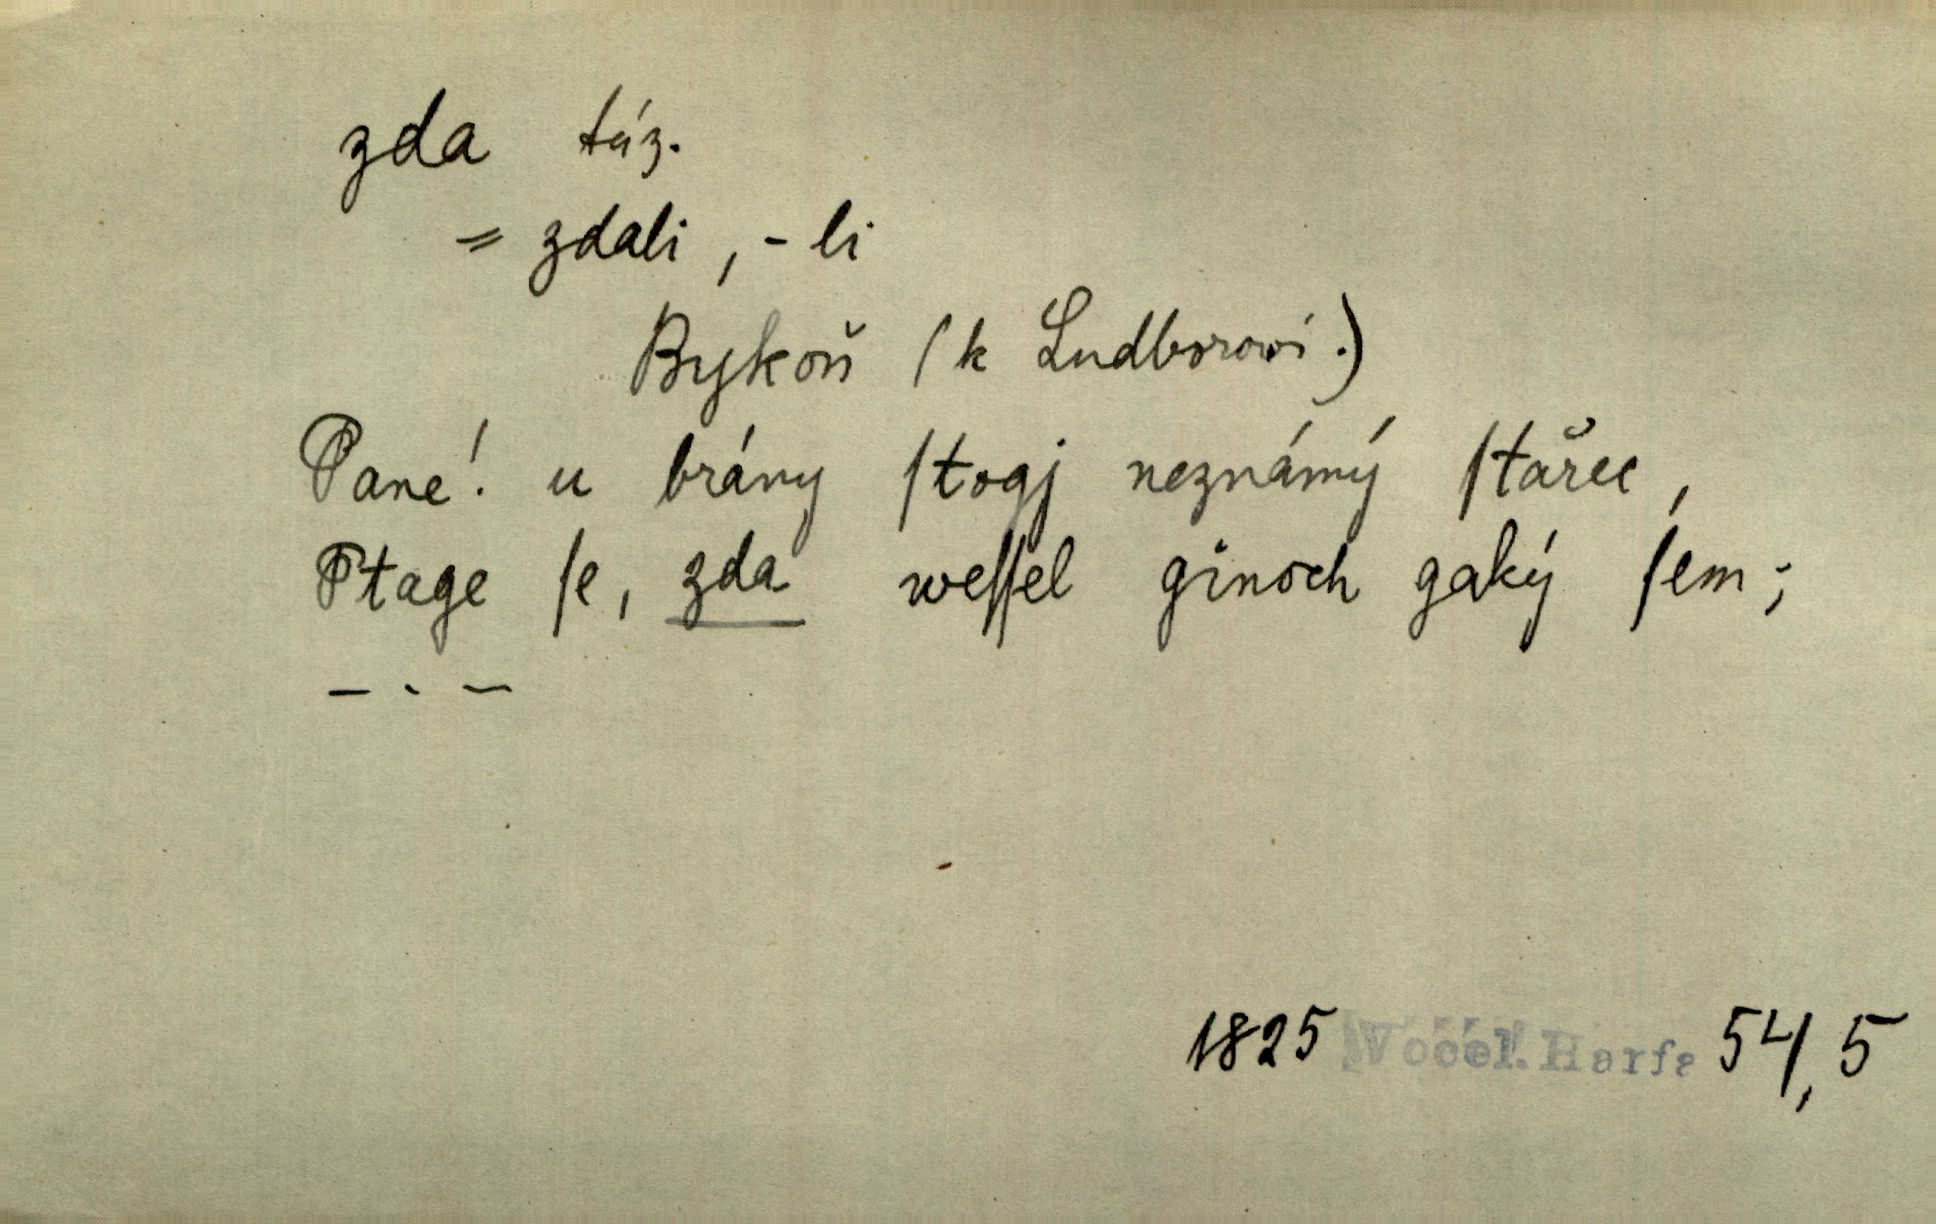 zda táz.
= zdali, -li
Bykoň (k Ludborowi.)
Pane! u brány ſtogj neznámý ſtařec,
Ptage ſe, zda weſſel ginoch gaký ſem;
— . —
1825 Wocel. Harfa 54,5